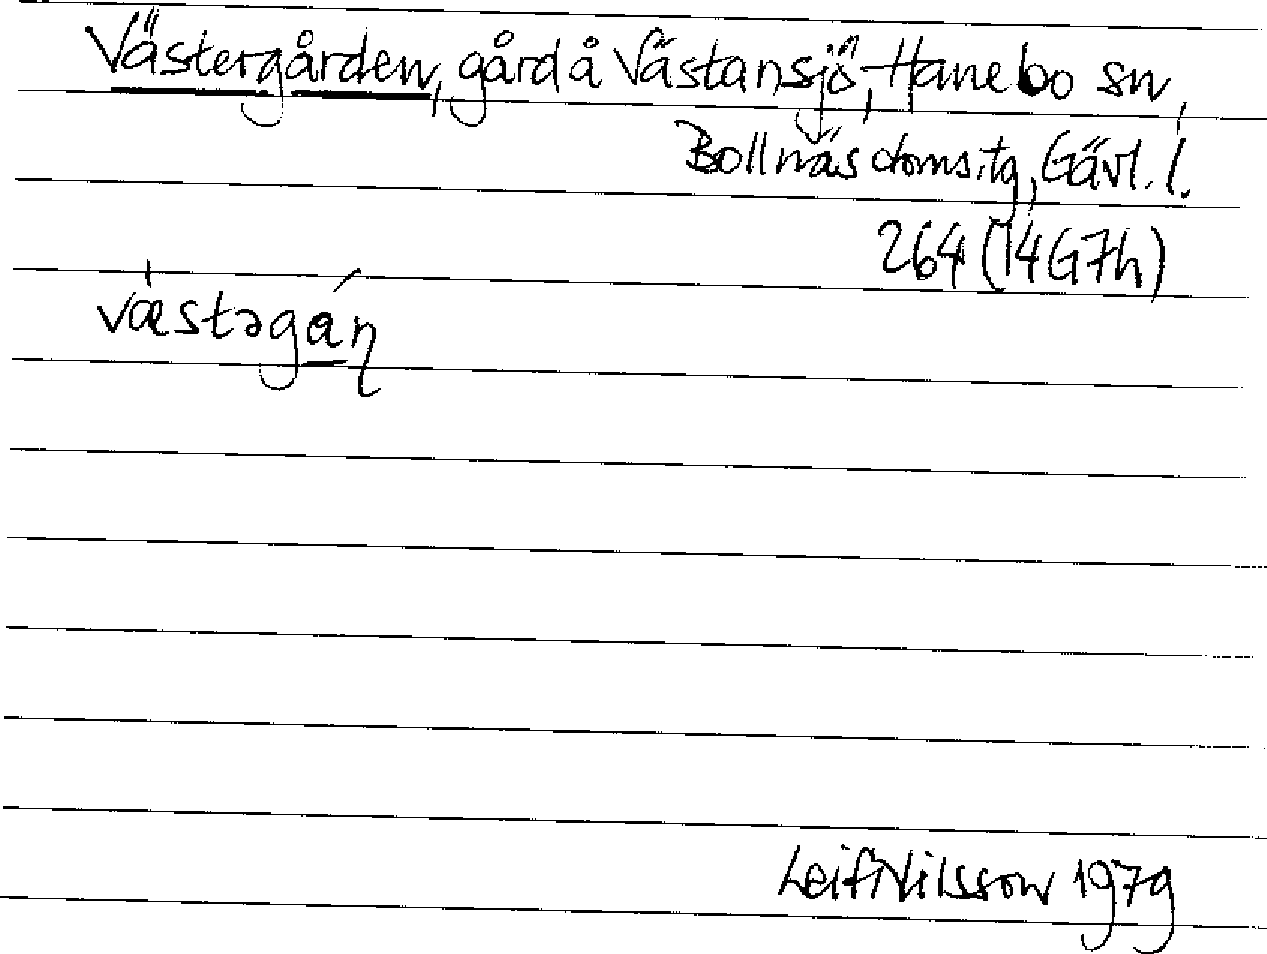 Västergården, gård å Västansjö, Hanebo sn,
Bollnäs doms.tg, Gävl. l.
264 (14G7h)
væstəgán
Leif Nilsson 1979